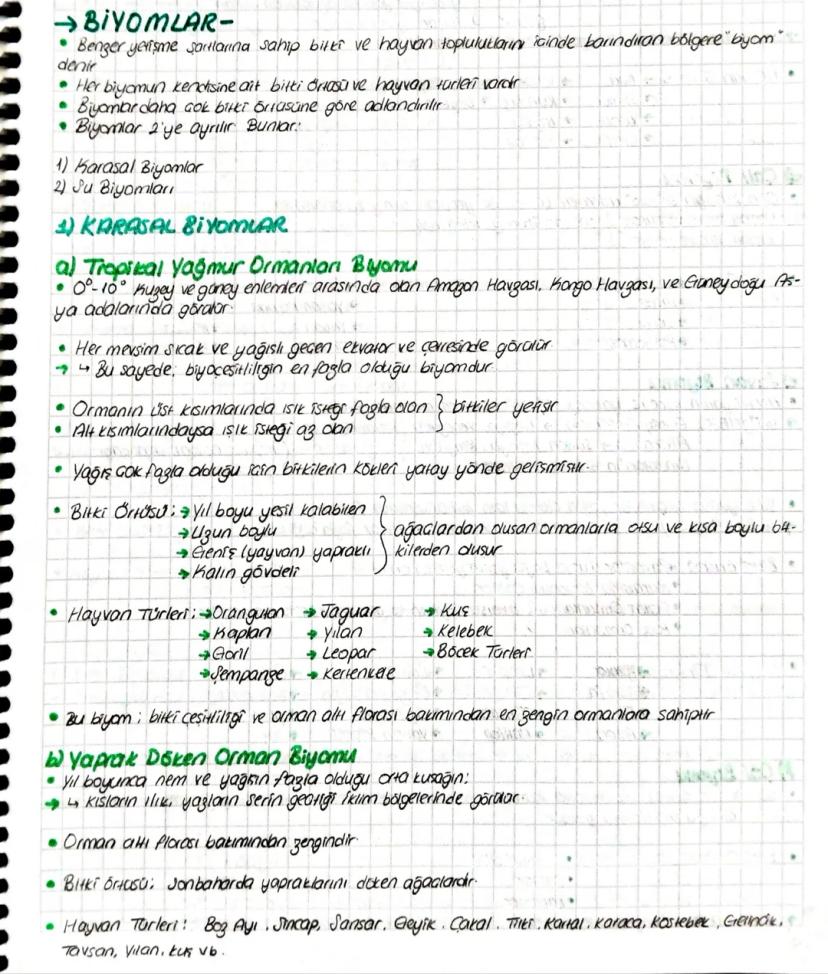 → BİYOMLAR-
• Benzer yetişme şartlarına sahip bitki ve hayvan topluluklarını içinde barındıran bölgere "biyom"
denir
• Her biyomun kendisine ait bitki örtüsü ve hayvan türleri vardır
• Biyomlar daha çok bitki örtüsüne göre adlandırılır
• Biyomlar 2'ye ayrılır Bunlar:
1) Karasal Biyomlar
2) Su Biyomları
1) KARASAL BİYOMLAR
a) Tropikal Yağmur Ormanları Biyomu
• 0°-10° Kuzey ve güney enlemleri arasında olan Amazon Havzası, Kongo Havzası, ve Güneydoğu As-
ya adalarında görülür.
• Her mevsim sıcak ve yağışlı geçen ekvator ve çevresinde görülür
→ ↳ Bu sayede; biyoçeşitliliğin en fazla olduğu biyomdur
• Ormanın üst kısımlarında ışık isteği fazla olan } bitkiler yetişir
• Alt kısımlarındaysa ışık isteği az olan
• Yağış çok fazla olduğu için bitkilerin kökleri yatay yönde gelişmiştir.
• Bitki Örtüsü: → Yıl boyu yeşil kalabilen
→ Uzun boylu } ağaçlardan oluşan ormanlarla otsu ve kısa boylu bit-
→ Geniş (yayvan) yapraklı kilerden oluşur
→ Kalın gövdeli
• Hayvan Türleri: → Orangutan → Jaguar → Kuş
→ Kaplan → Yılan → Kelebek
→ Goril → Leopar → Böcek Türleri
→ Şempanze → Kertenkele
• Bu biyom; bitki çeşitliliği ve orman altı florası bakımından en zengin ormanlara sahiptir
b) Yaprak Döken Orman Biyomu
• Yıl boyunca nem ve yağışın fazla olduğu orta kuşağın;
→ ↳ kışların ılık, yazların serin geçtiği iklim bölgelerinde görülür.
• Orman altı florası bakımından zengindir
• Bitki örtüsü: Sonbaharda yapraklarını döken ağaçlardır.
• Hayvan Türleri: Boz Ayı, Sincap, Sansar, Geyik, Çakal, Tilki, Kartal, Karaca, Köstebek, Gelincik,
Tavşan, Yılan, Kuş vb.